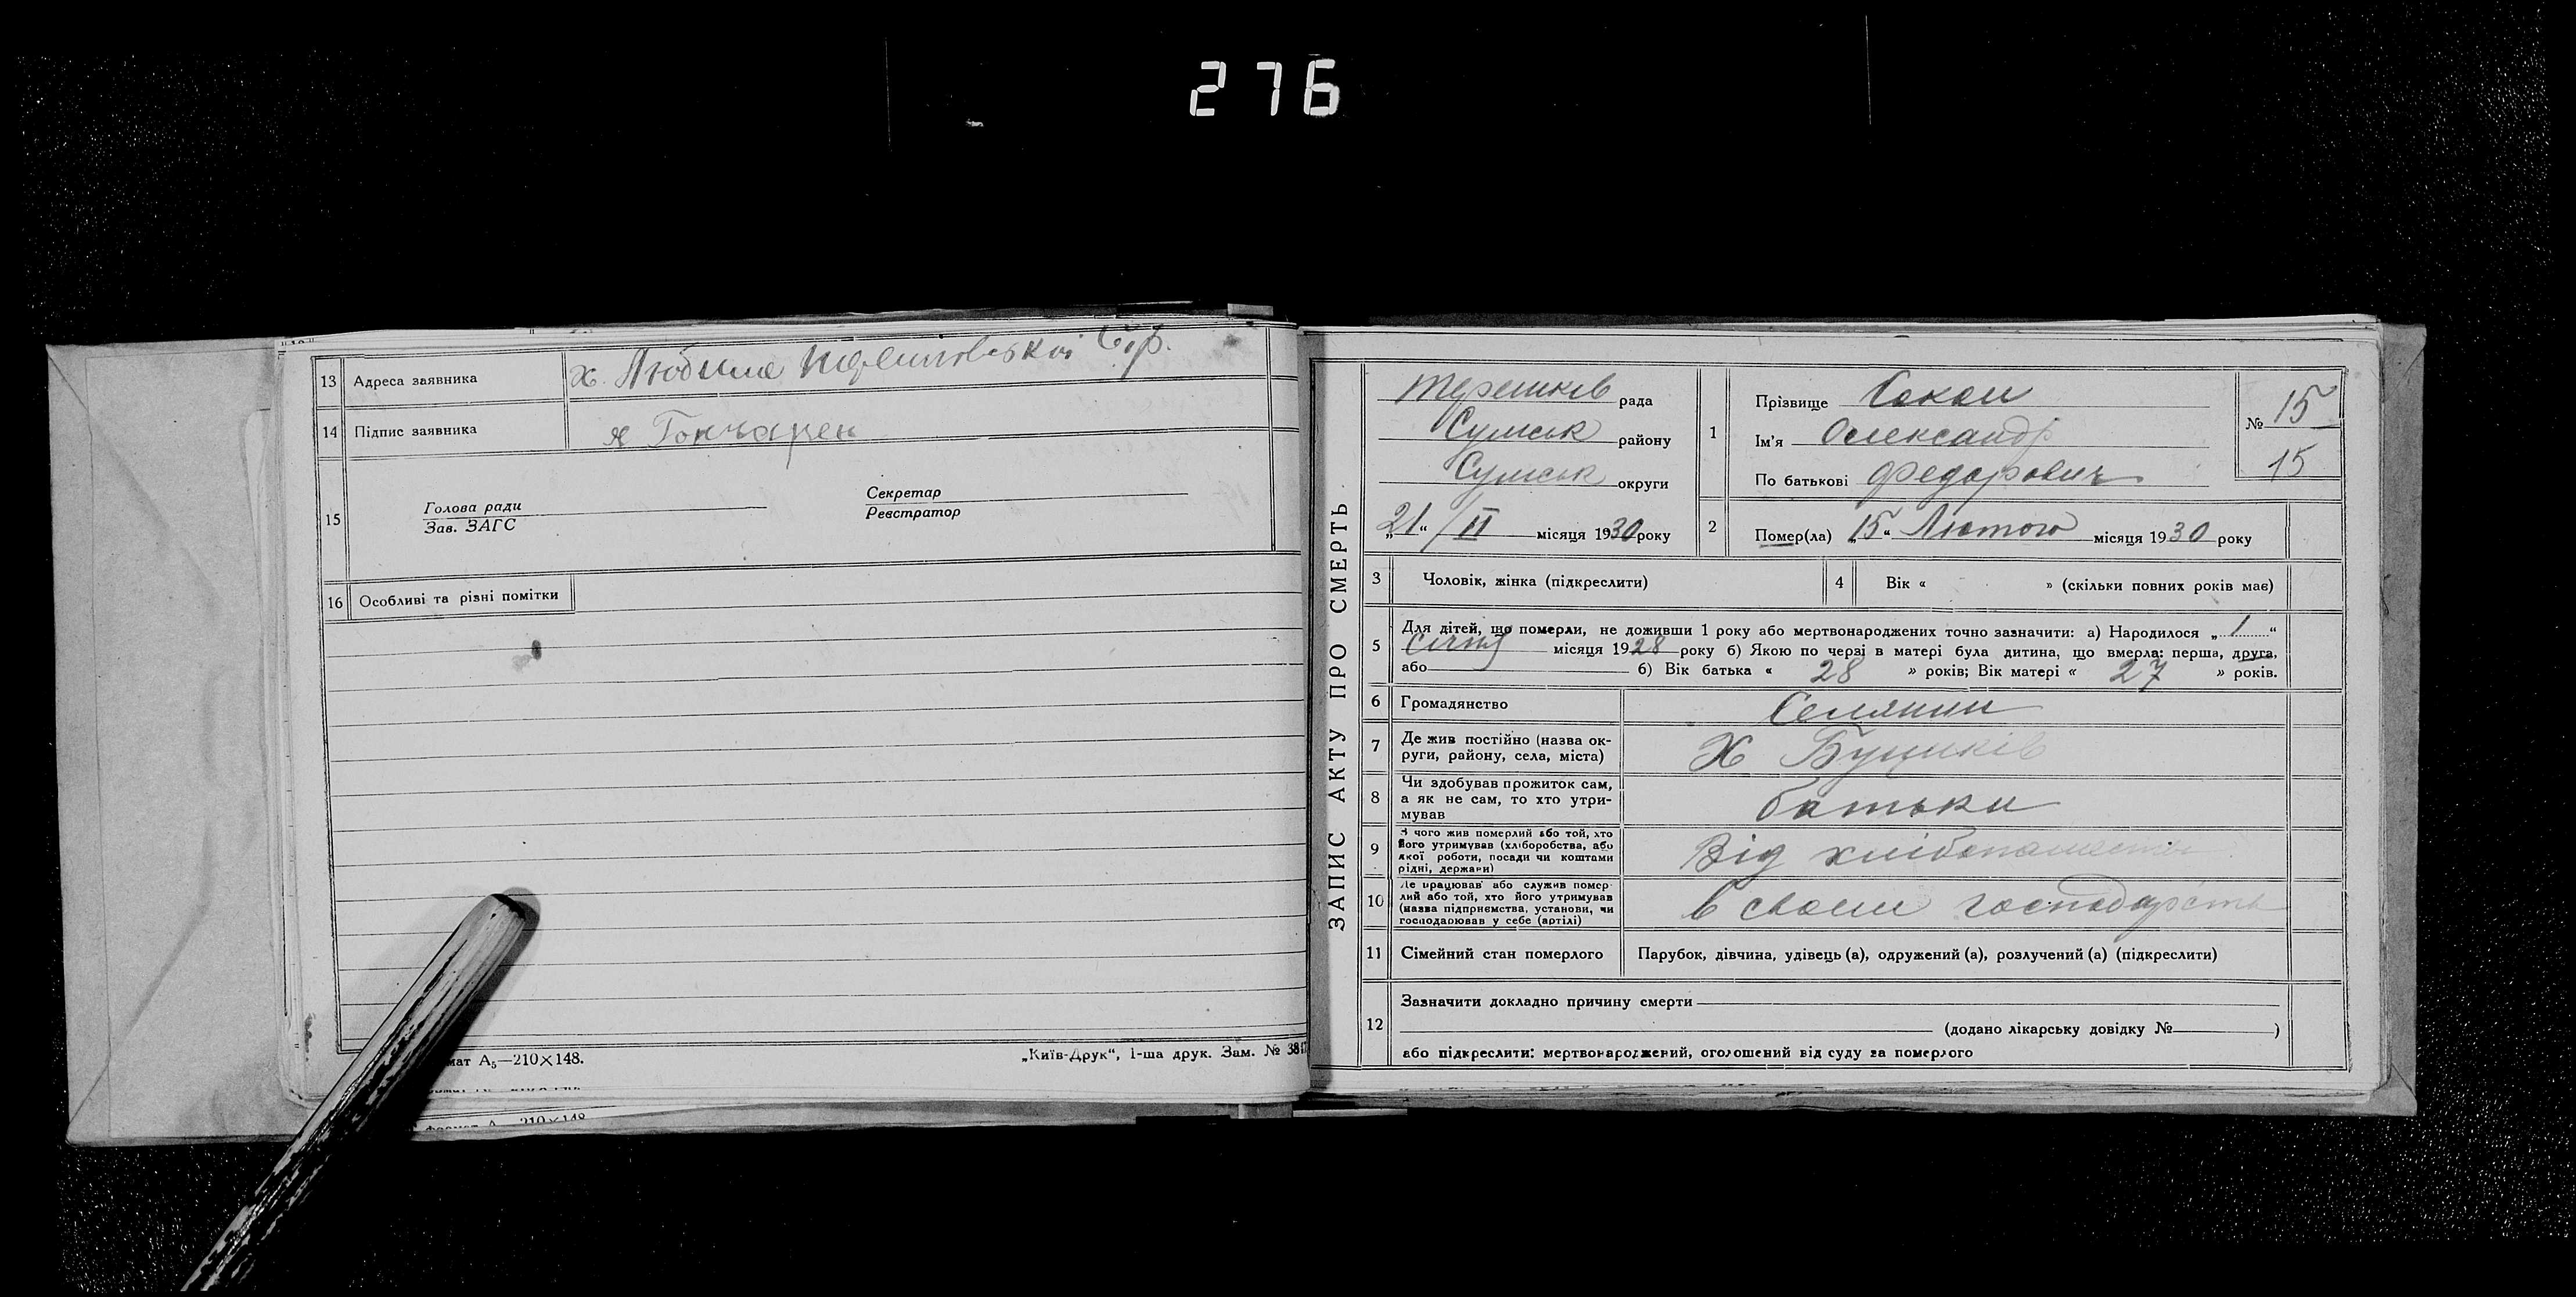 276
13 Адреса заявника х. Любиме Терешківської С/р.
14 Підпис заявника Гончарен
15 Голова ради
Зав. ЗАГС
Секретар
Реєстратор
16 Особливі та різні помітки
мат А5—210×148.
„Київ-Друк“, 1-ша друк. Зам. № 381
Формат А 210×148
ЗАПИС АКТУ ПРО СМЕРТЬ
Терешків рада
Сумськ району
Сумськ округи
„21“ / II місяця 1930 року
1 Прізвище
Ім'я Олександр
По батькові Федорович
№ 15
15
2 Помер(ла) „15“ Лютого місяця 1930 року
3 Чоловік, жінка (підкреслити)
4 Вік « » (скільки повних років має)
5 Для дітей, що померли, не доживши 1 року або мертвонароджених точно зазначити: а) Народилося „1“
Січня місяця 1928 року б) Якою по черзі в матері була дитина, що вмерла: перша, друга,
або б) Вік батька « 28 » років; Вік матері « 27 » років.
6 Громадянство Селянин
7 Де жив постійно (назва ок-
руги, району, села, міста) Х
8 Чи здобував прожиток сам,
а як не сам, то хто утри-
мував батьки
9 З чого жив померлий або той, хто
його утримував (хліборобства, або
якої роботи, посади чи коштами
рідні, держави) Від
10 Де працював або служив помер-
лий або той, хто його утримував
(назва підприємства, установи, чи
господарював у себе (артілі) в своем господарств
11 Сімейний стан померлого Парубок, дівчина, удівець (а), одружений (а), розлучений (а) (підкреслити)
12 Зазначити докладно причину смерти
(додано лікарську довідку № )
або підкреслити: мертвонароджений, оголошений від суду за померлого